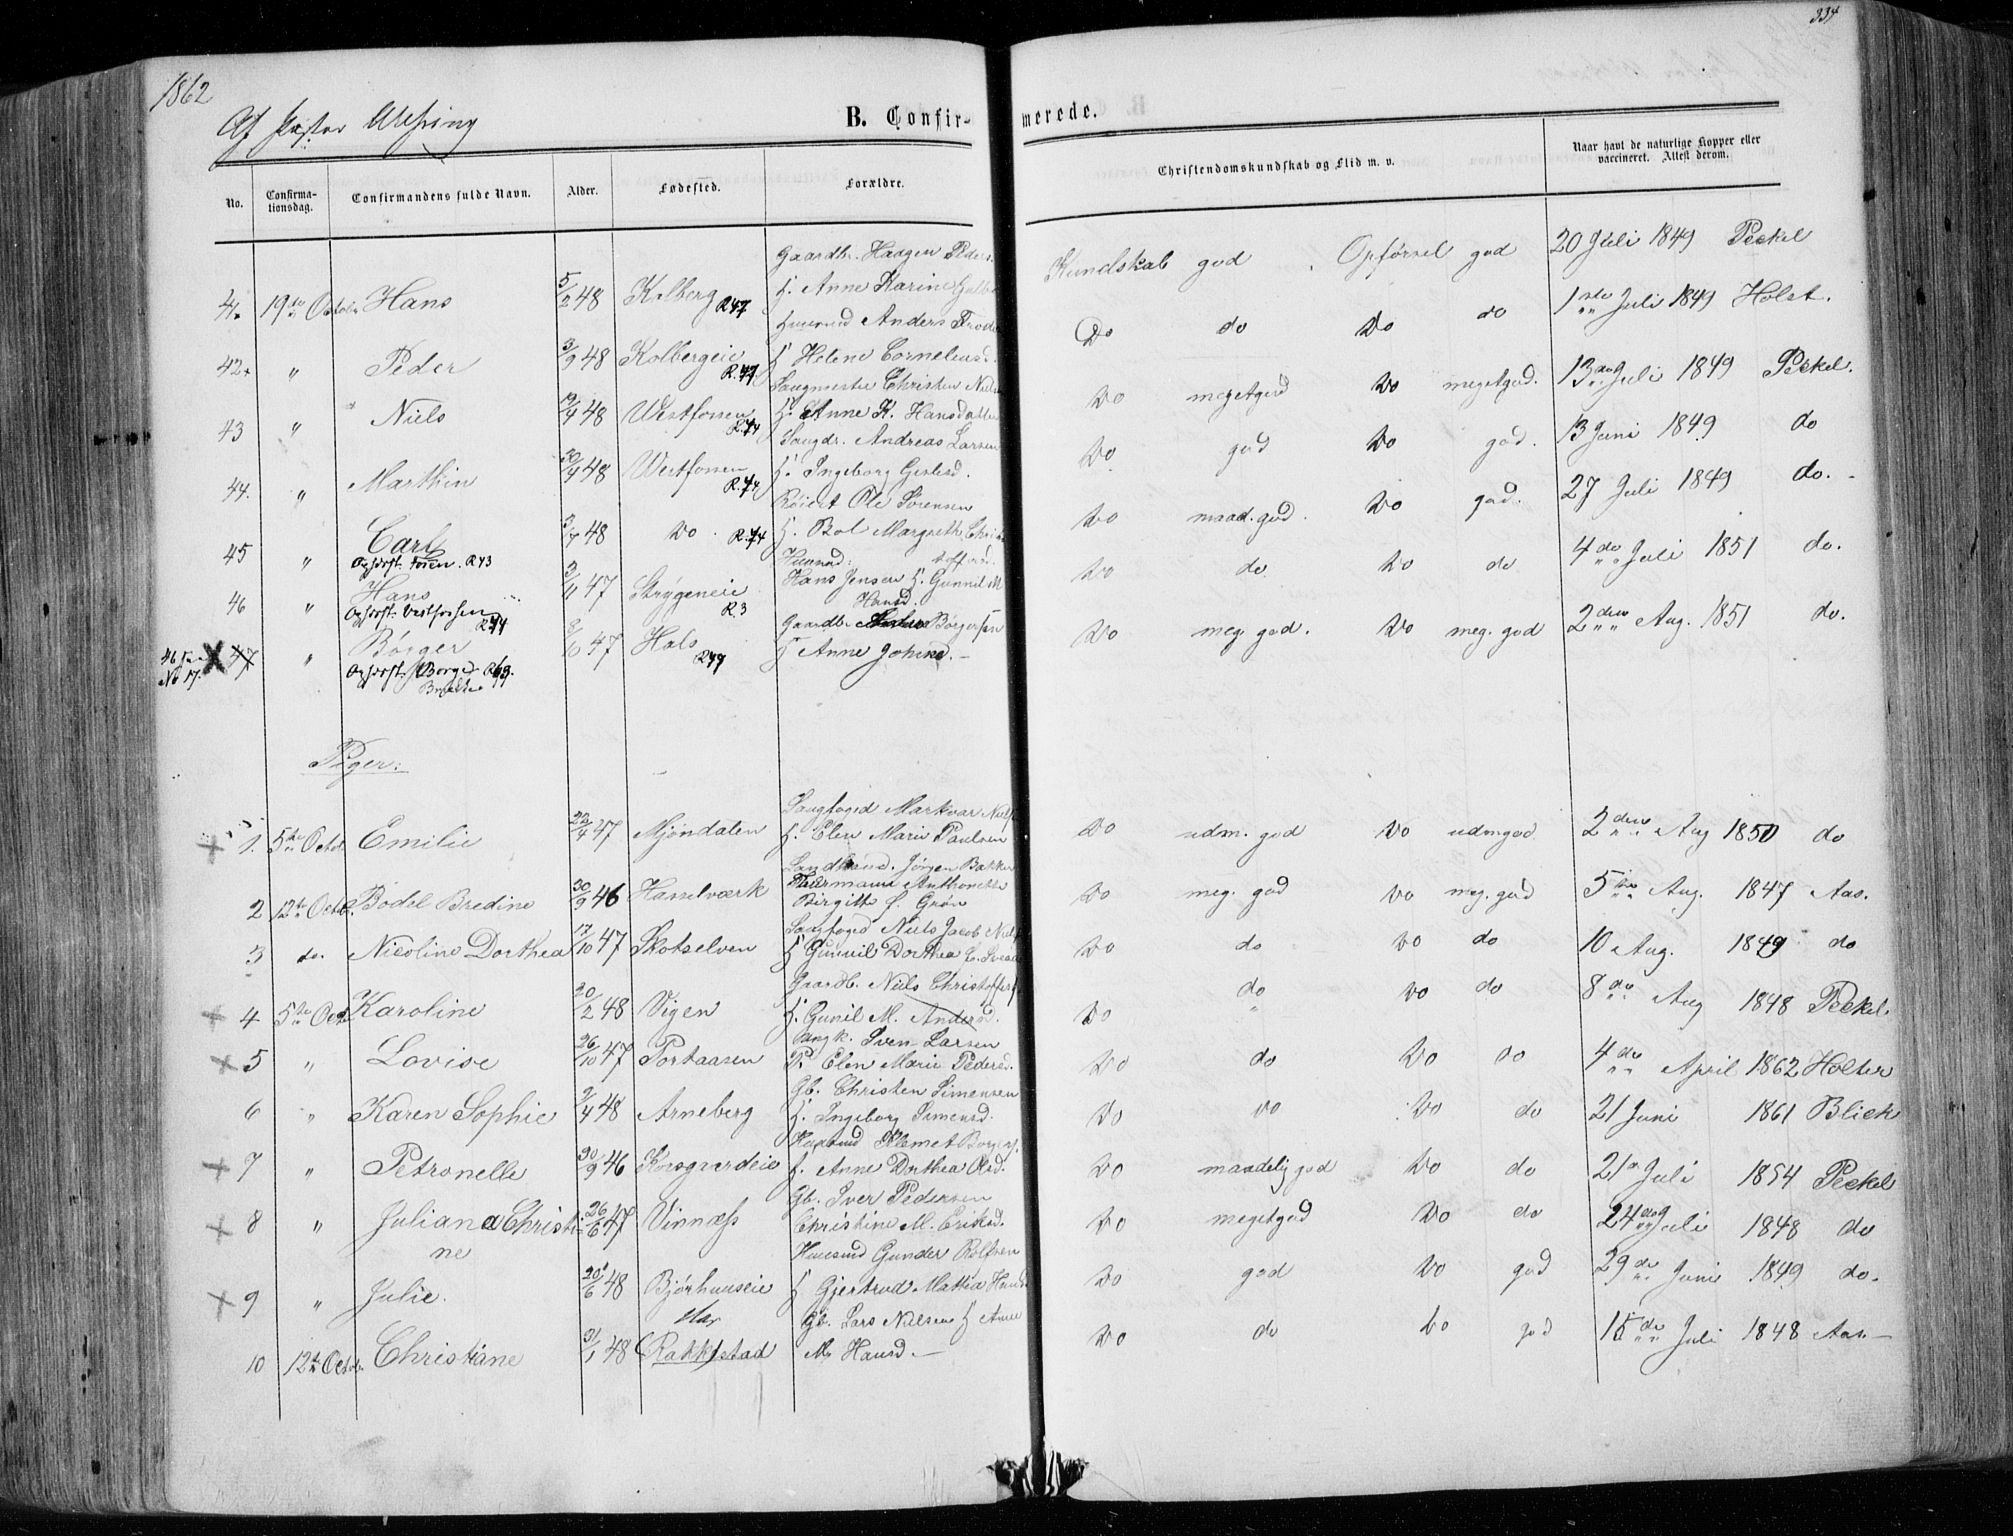 1862
334
Af Pastor
B. Confirmerede.
No.
Confirmationsdag.
Confirmandens fulde Navn.
Alder.
Fødested.
Forældre.
Christendomskundskab og Flid m. v.
Naar havt de naturlige Kopper eller vaccineret. Attest derom.
Gaardbr. Haagen Peders.
41. 19de Octobr Hans 5/2 48 Kolberg R47 H. Anne Karine Kundskab god. Opførsel god 20 Juli 1849 Peckel
Huusmd Anders
42 " Peder 3/9 48 Kolbergeie R.47 H Helene Cornelensd. Do do Do do 1ste Juli 1849 Holst.
Saugmester Christen Niels
43 " Niels 48 Westfossen R.44 H. Anne K. Hansdatter Do megetgod Do megetgod. 13de Juli 1849 Peckel.
Saugdr. Andreas Larsen
44. " Marthin 48 Westfossen R.44 H. Ingeborg Do god Do god. 13 Juni 1849 do
Ole Sørensen
45 " Carl 3/7 48 Do. R.44 H. Bol Margreth Chri Do maad. god. Do god. 27 Juli 1849 do.
Opfost. Foien. R43 stoffersd.
Huusmd.
46 " Hans 3/11 47 Strygeneie R.3 Hans Jensen H. Gunnil M Do do Do do 4de Juli 1851 do.
Opfost. Vestfossen R44 Hansd.
Gaardbr. Børgersen
46 No 17. 47 " Børger 47 Hals R49 H Anne Johnsd. Do meg. god. Do meg. god 2den Aug. 1851 do.
Opfost. Borge
Piger:
Saugfoged Markvar Niels
1. 5te Octob. Emilie 22/4 47 Mjøndalen H. Elen Marie Paulsen Do udm. god Do udm god 2den Aug 1850 do
Jørgen Bakke
2 12te Octob. Bodel Bredine 30/9 46 Hasselværk Anthonette Do meg. god Do meg. god 5te Aug. 1847 Aas.
Birgitte Grøn
Saugfoged Niels Jacob Niels
3 do. Nicoline Dorthea 17/10 47 Skotselven H Gunnil Dorthea Do do Do do 10 Aug. 1849 do
Gaardb. Niels Christoffers
4 5te Oct. Karoline 20/2 48 Vigen H. Gunil M. Andersd. Do do Do do 8de Aug 1848 Peckel.
Iven Larsen
5 " Lovise 26/10 47 Portaasen P. Elen Marie Pedersd. Do do Do do 4de April 1862 Holter
Gb. Christen Simensen
6 " Karen Sophie 9/4 48 Arneberg H. Ingeborg Simensd. Do Do Do do 21 Juni 1861 Blick
Huusmd Klemet Borgers.
7 " Petronelle 30/9 46 Korsgaardeie H. Anne Dorthea Olsd. Do maadelig god Do do 21de Juli 1854 Peckel
Gb. Iver Pedersen
8 " Juliana Christi- 26/6 47 Vinnæss Christine M. Eriksd. Do megetgod Do do 24de Juli 1848 do
ne
Huusmd Gunder Rolfsen
9 " Julie. 20/6 48 Bjørhuuseie H Gjertrud Mathea Hansd Do god Do god 29de Juni 1849 do.
Gb. Lars Nielsen H Anne
10 12te Octobr. Christiane 31/1 48 Rakkestad M. Hansd. Do do Do god 15de Juli 1848 Aas.